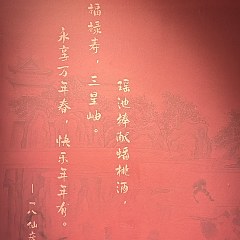 瑶池捧献蟠桃酒，
福禄寿，三星岫。
永享万年春，快乐年年有。
—八仙